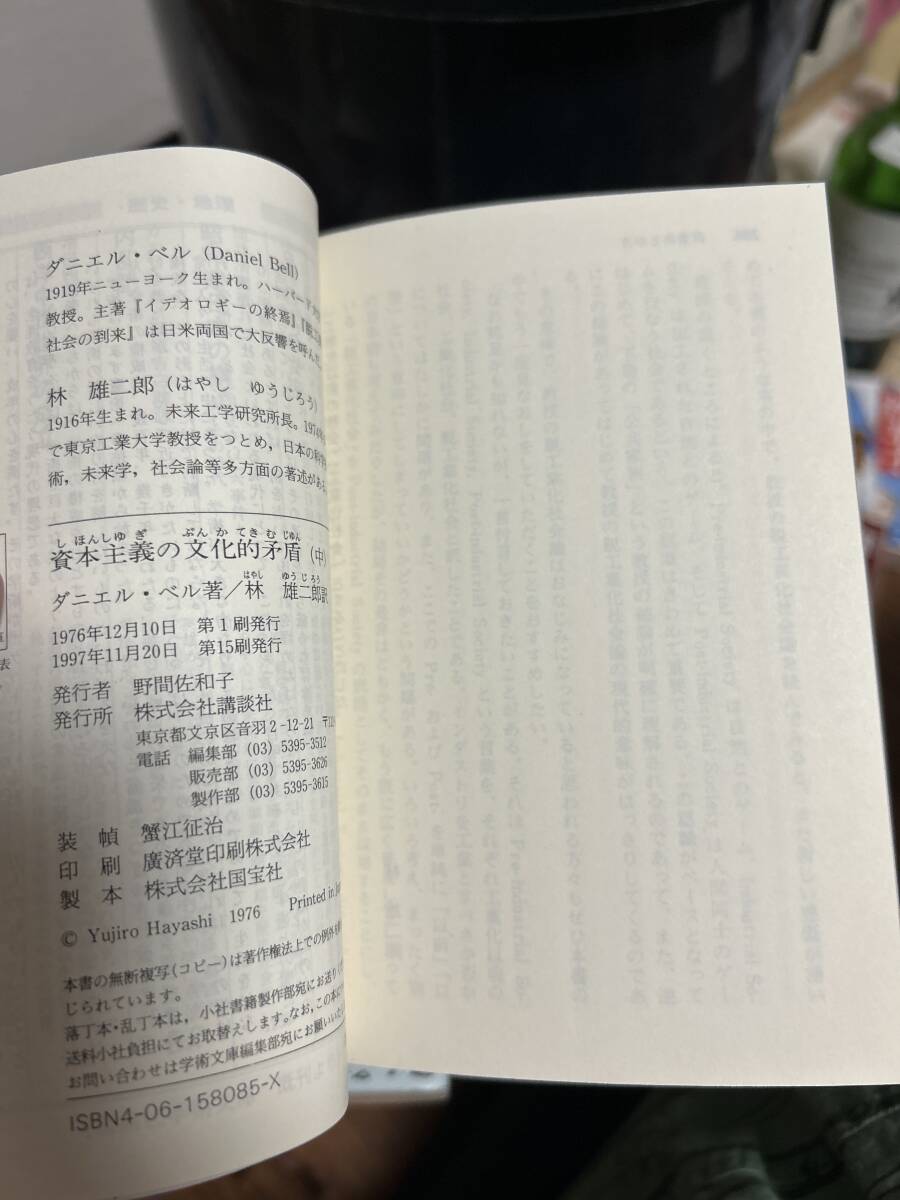 ダニエル・ベル (Daniel Bell)
1919年ニューヨーク生まれ。ハーバード
教授。主著『イデオロギーの終焉』『
社会の到来』は日米両国で大反響を呼ん
林 雄二郎 (はやし ゆうじろう)
1916年生まれ。未来工学研究所長。1974
で東京工業大学教授をつとめ，日本の科学
術，未来学，社会論等多方面の著述がある。
しほんしゆぎ ぶんかてきむじゅん
資本主義の文化的矛盾 (中)
はやし ゆうじろう
ダニエル・ベル著／林 雄二郎訳
1976年12月10日 第1刷発行
1997年11月20日 第15刷発行
発行者 野間佐和子
発行所 株式会社講談社
東京都文京区音羽2-12-21 〒
電話 編集部 (03) 5395-3512
販売部 (03) 5395-3626
製作部 (03) 5395-3615
装 幀 蟹江征治
印 刷 廣済堂印刷株式会社
製 本 株式会社国宝社
© Yujiro Hayashi 1976 Printed in
本書の無断複写(コピー)は著作権法上での例外を
じられています。
落丁本・乱丁本は，小社書籍製作部宛にお送り
送料小社負担にてお取替えします。なお，この本に
お問い合わせは学術文庫編集部宛にお願いいた
ISBN4-06-158085-X